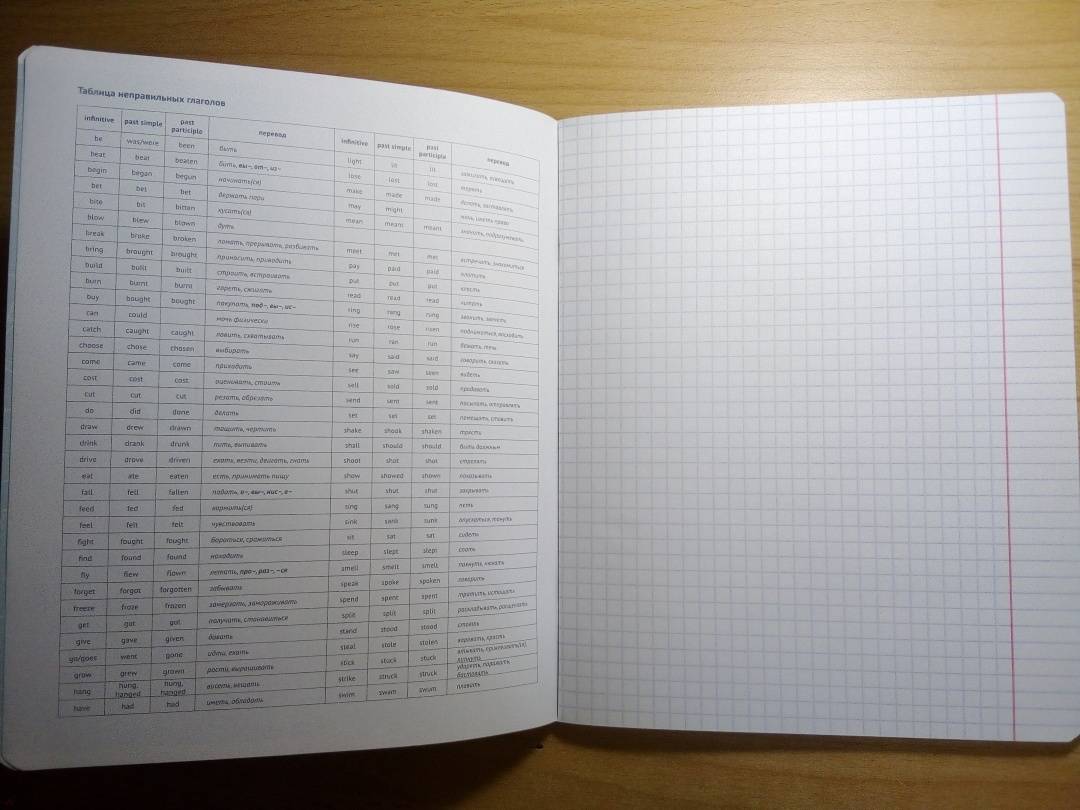 Таблица неправильных глаголов
infinitive past simple past participle перевод
be was/were been быть
beat beat beaten бить, вы–, от–, из–
begin began begun начинать(ся)
bet bet bet держать пари
bite bit bitten кусать(ся)
blow blew blown дуть
break broke broken ломать, прерывать, разбивать
bring brought brought приносить, приводить
build built built строить, встраивать
burn burnt burnt гореть, сжигать
buy bought bought покупать, под–, вы–, ис–
can could мочь физически
catch caught caught ловить, схватывать
choose chose chosen выбирать
come came come приходить
cost cost cost оценивать, стоить
cut cut cut резать, обрезать
do did done делать
draw drew drawn тащить, чертить
drink drank drunk пить, выпивать
drive drove driven ехать, везти, двигать, гнать
eat ate eaten есть, принимать пищу
fall fell fallen падать, о–, вы–, нис–, в–
feed fed fed кормить(ся)
feel felt felt чувствовать
fight fought fought бороться, сражаться
find found found находить
fly flew flown летать, про–, раз–, –ся
forget forgot forgotten забывать
freeze froze frozen замерзать, замораживать
get got got получать, становиться
give gave given давать
go/goes went gone идти, ехать
grow grew grown расти, выращивать
hang hung, hanged hung, hanged висеть, вешать
have had had иметь, обладать
infinitive past simple past participle перевод
light lit lit зажигать, освещать
lose lost lost терять
make made made делать, заставлять
may might мочь, иметь право
mean meant meant значить, подразумевать
meet met met встречать, знакомиться
pay paid paid платить
put put put класть
read read read читать
ring rang rung звонить, звенеть
rise rose risen подниматься, восходить
run ran run бежать, течь
say said said говорить, сказать
see saw seen видеть
sell sold sold продавать
send sent sent посылать, отправлять
set set set помещать, ставить
shake shook shaken трясти
shall should should быть должным
shoot shot shot стрелять
show showed shown показывать
shut shut shut закрывать
sing sang sung петь
sink sank sunk опускаться, тонуть
sit sat sat сидеть
sleep slept slept спать
smell smelt smelt пахнуть, нюхать
speak spoke spoken говорить
spend spent spent тратить, истощать
split split split раскладывать, расщеплять
stand stood stood стоять
steal stole stolen воровать, красть
stick stuck stuck втыкать, приклеивать(ся), липнуть
strike struck struck ударять, поражать бастовать
swim swam swum плавать